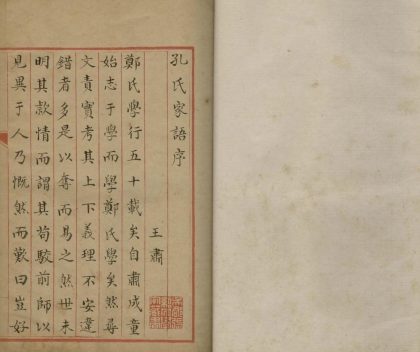 孔氏家語序
王肅
鄭氏學行五十載矣自肅成童
始志于學而學鄭氏學矣然尋
文責實考其上下義理不安違
錯者多是以奪而易之然世未
明其款情而謂其苟駁前師以
見異于人乃慨然而歎曰豈好